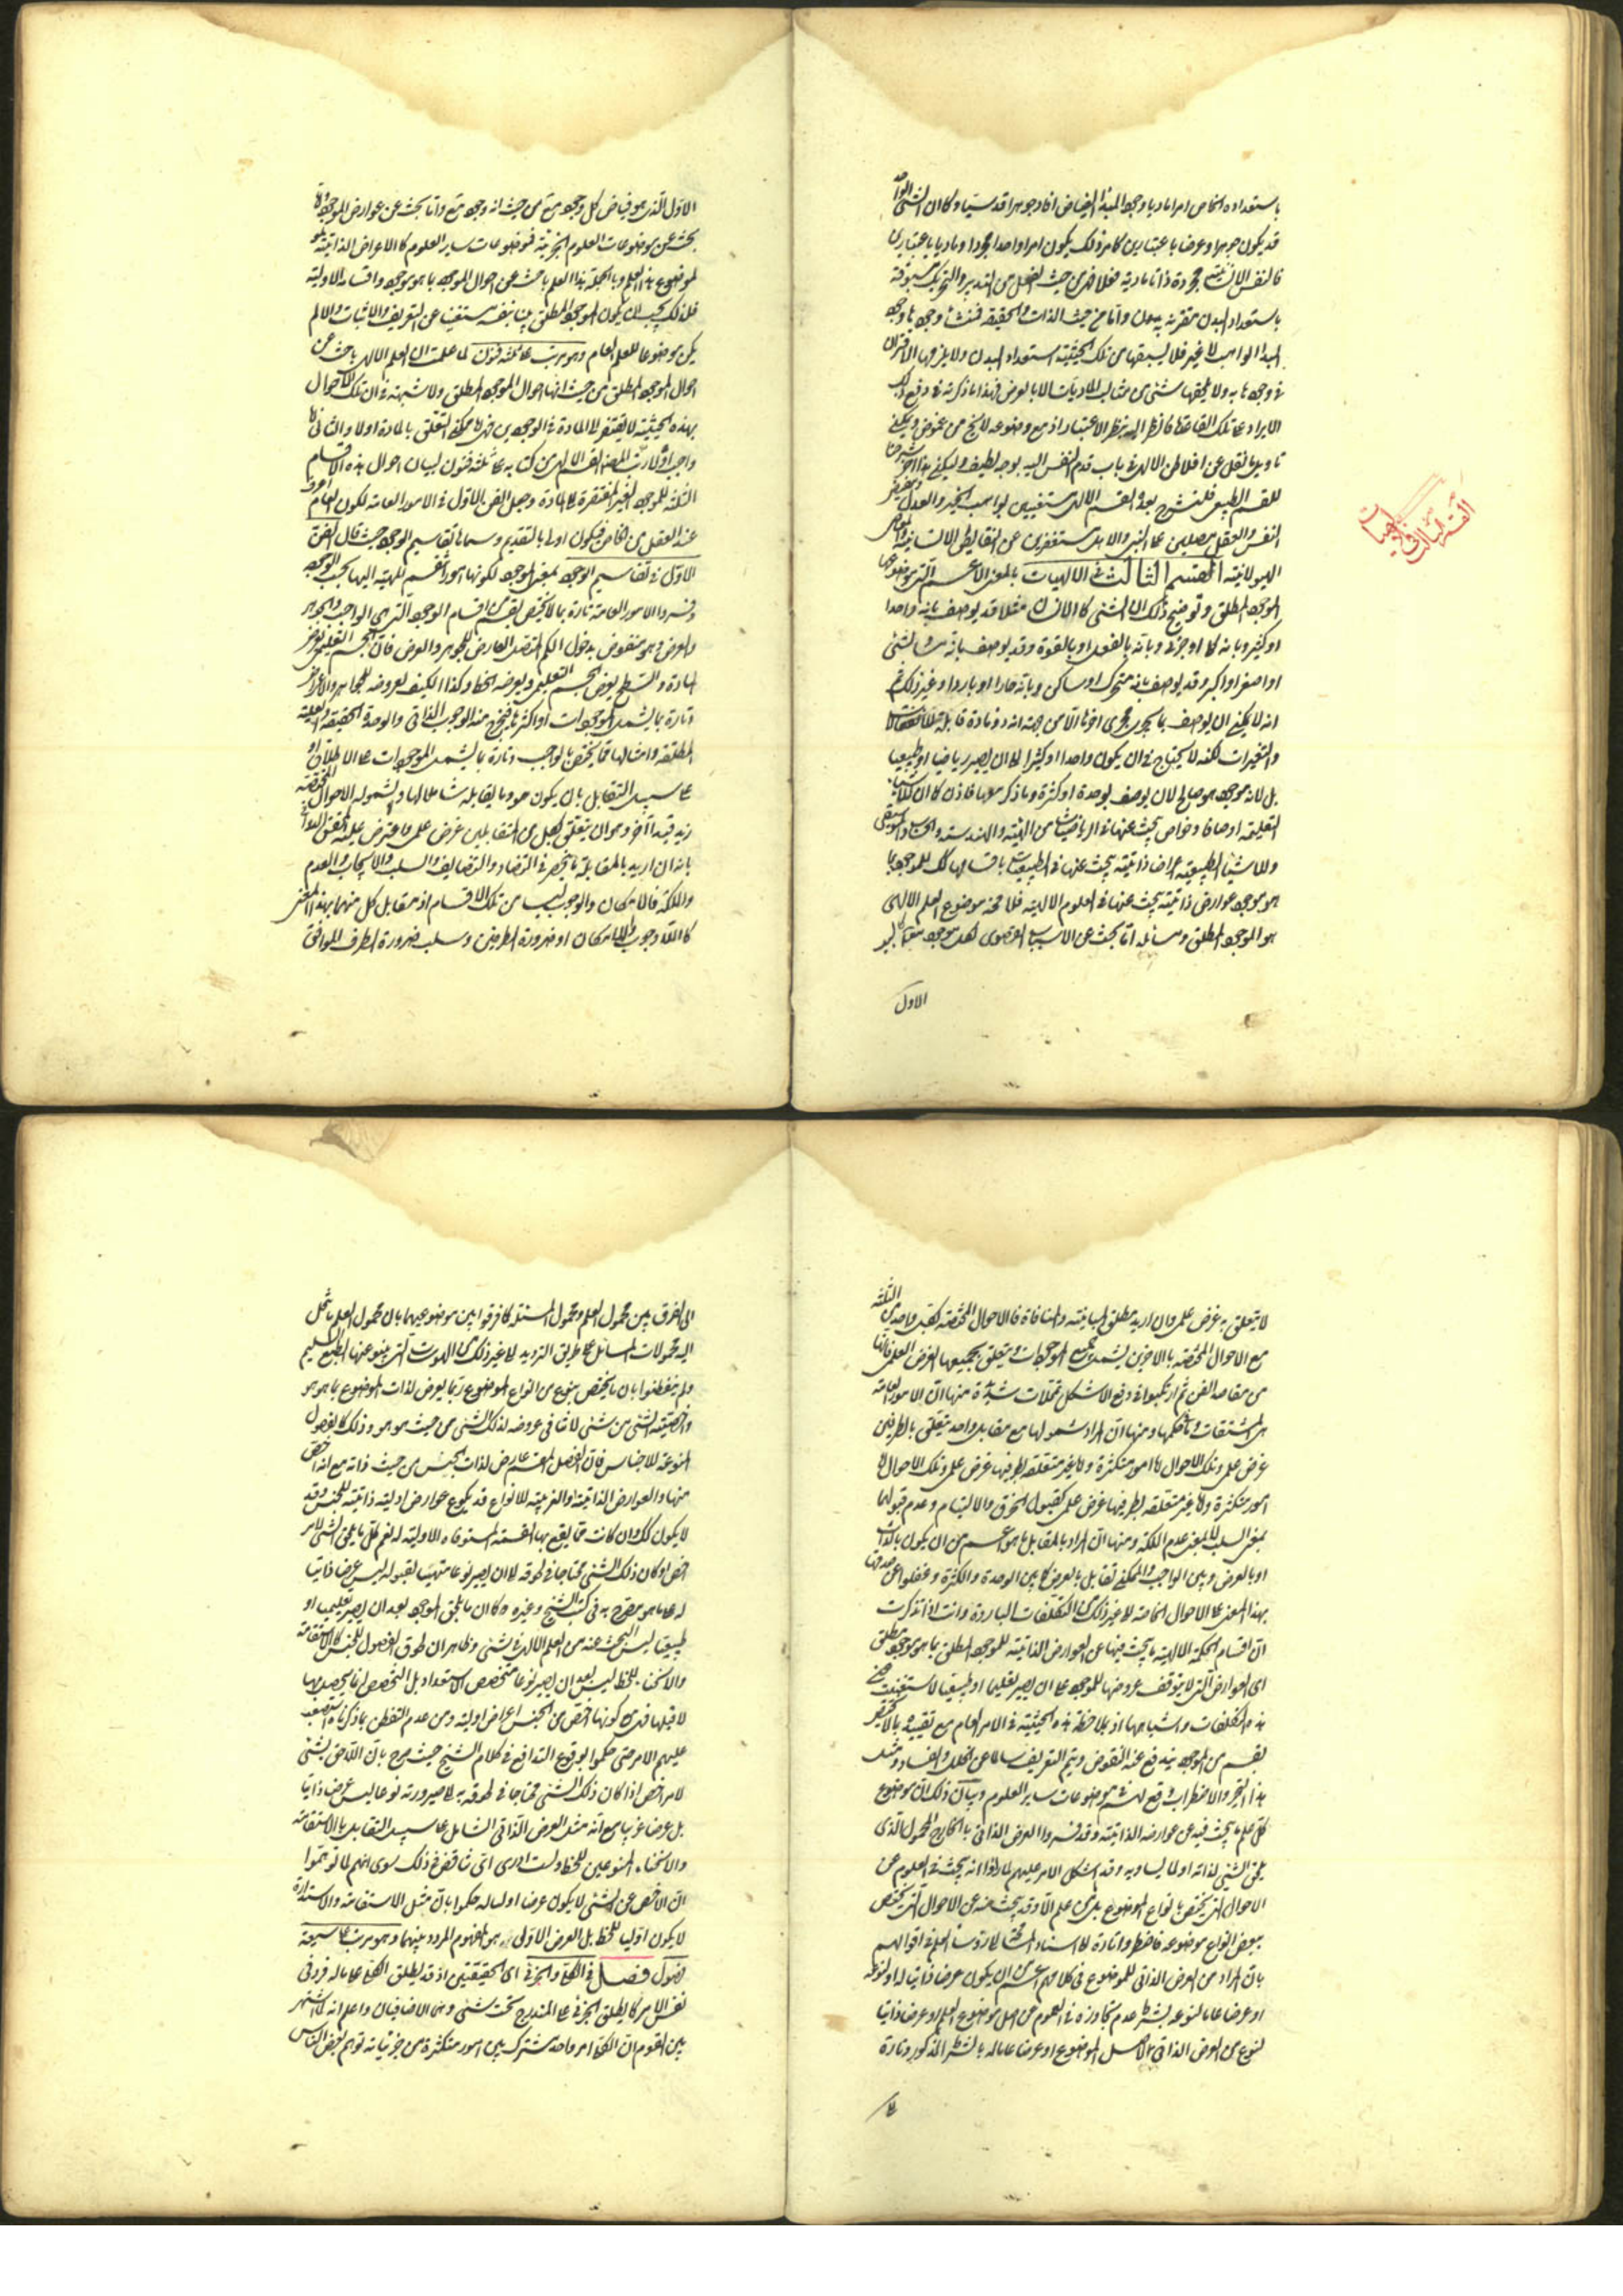 باستعداده الخاص امرا ماديا وجود المبدأ الفياض افاد جوهرا قدسيا وكما ان الشئ الواحد
قد يكون جوهرا وعرضا باعتبارين كما مر فكذلك يكون امرا واحدا مجردا وماديا باعتبارين
فالنفس الانسانية مجردة ذاتا مادية فعلا فهى من حيث الفعل من التدبير والتحريك مسبوقة
باستعداد البدن مقترنة به واما من حيث الذات والحقيقة فمنشأ وجودها وجود
المبدأ الواهب لا غير فلا يسبقها من تلك الحيثية استعداد البدن ولا يلزمها الاقتران
فى وجودها به ولا يلحقها شئ من مثالب الماديات الا بالعرض فهذا ما ذكرته فى دفع ذلك
الايراد على تلك القاعدة فانظر اليه بنظر الاعتبار اذ مع وضوحه لا يخ من غموض ويمكن
تأويل ما نقل عن افلاطن الالهى فى باب قدم النفس اليه بوجه لطيف وليكن هذا آخر
للقسم الطبيعى فلنشرع بعده القسم الالهى مستفيضين لواهب الخير والعدل
النفس والعقل مصلين على النبى والاهل مستغفرين عن النقايص الانسانية
الهيولانية القسم الثالث فى الالهيات بالمعنى الاعم التى موضوعها
الموجود المطلق وتوضيح ذلك ان الشئ كالانسان مثلا قد يوصف بانه واحد
او كثير وبانه كلى او جزئى وبانه بالفعل او بالقوة وقد يوصف بانه مساو لشئ
او اصغر او اكبر وقد يوصف بانه متحرك او ساكن وبانه حار او بارد او غير ذلك ثم
انه لا يمكن ان يوصف بما يجرى مجرى اخرها الا من جهة انه ذو مادة قابلة للانفعالات
والتغيرات لكنه لا يحتاج فى ان يكون واحدا او كثيرا الى ان يصير رياضيا او طبيعيا
بل لانه موجود هو صالح لان يوصف بوحدة او كثرة وما ذكر معها فاذن كما ان للاشياء
التعليمية اوصافا وخواص يبحث عنها فى الرياضيات من الهيئة والهندسة والحساب والموسيقى
وللاشياء الطبيعية اعراضا ذاتية يبحث عنها فى الطبيعيات باقسامها كك للموجود بما
هو موجود عوارض ذاتية يبحث عنها فى العلوم الالهية فلا محة موضوع العلم الالهى
هو الموجود المطلق ومسائله اما بحث عن الاسباب القصوى لكل موجود معلول
الاول
القسم الثالث فى الالهيات
الاول الذى هو فياض كل وجود من حيث انه وجود واما بحث عن عوارض الموجود
بحث عن موضوعات العلوم الجزئية فموضوعات ساير العلوم كالاعراض الذاتية
لموضوع هذا العلم وبالجملة هذا العلم باحث عن احوال الموجود بما هو موجود واقسامه الاولية
فلذلك يجب ان يكون الموجود المطلق بينا بنفسه مستغنيا عن التعريف والاثبات والا لم
يكن موضوعا للعلم العام وهو مرتب على ثلثة فنون لما علمت ان العلم الالهى باحث عن
احوال الموجود المطلق من حيث انها احوال الموجود المطلق ولا شبهة فى ان تلك الاحوال
بهذه الحيثية لا يفتقر الى المادة فى الوجود
الثلثة للموجود الغير المفتقرة الى المادة وجعل الفن الاول فى الامور العامة لكون العام
عند العقل من الخاص فيكون اولى بالتقديم وسماها تقاسيم الوجود حيث قال الفن
الاول فى تقاسيم الوجود بمعنى الموجود لكونها امورا تنقسم المهية اليها بحسب الوجود
وفسروا الامور العامة تارة بما لا يختص بقسم من اقسام الموجود التى هى الواجب والجوهر
والعرض وهو منقوض بدخول الكم المتصل العارض للجوهر والعرض فان الجسم التعليمى يعرض
المادة والسطح يعرض الجسم التعليمى ويعرضه الخط وكذا الكيف لعروضه للجواهر والاعراض
وتارة بما يشمل الموجودات او اكثرها فيخرج منه الوجوب الذاتى والوحدة الحقيقية والعلية
المطلقة وامثالها مما يختص بالواجب وتارة بما يشمل الموجودات على الاطلاق او
على سبيل التقابل بان يكون هو وما يقابله شاملا لها ولشموله الاحوال المختصة
زيد قيد آخر وهو ان يتعلق بكل من المتقابلين غرض علمى واعترض عليه المحقق الدوانى
بانه ان اريد بالمقابلة ما ينحصر فى التضاد والتضايف والسلب والايجاب والعدم
والملكة فالامكان والوجوب ليسا من تلك الاقسام اذ مقابل كل منهما بهذا المعنى
كاللاوجوب واللاامكان او ضرورة الطرفين وسلب ضرورة الطرف الموافق
لا يتعلق به غرض علمى وان اريد مطلق المباينة والمنافاة فالاحوال المختصة بكل واحد من الثلثة
مع الاحوال المختصة بالاخرين يشمل جميع الموجودات ويتعلق بجميعها الغرض العلمى فانها
من مقاصد الفن ثم ارتكبوا فى دفع الاشكال تمحلات شديدة منها ان الامور العامة
هى المشتقات وما فى حكمها ومنها ان المراد شمولها مع مقابل واحد يتعلق بالطرفين
غرض علمى وتلك الاحوال اما امور متكثرة واما غير متعلقة بطرفيها غرض علمى وتلك الاحوال اما
امور متكثرة واما غير متعلقة بطرفيها غرض علمى كقبول الخرق والالتيام وعدم قبولهما
بمعنى السلب لا بمعنى عدم الملكة ومنها ان المراد بالمقابل ما هو اعم من ان يكون بالذات
او بالعرض وبين الواجب والممكن تقابل بالعرض كما بين الوحدة والكثرة وغفلوا عن صدقها
بهذا المعنى على الاحوال الخاصة الى غير ذلك من التكلفات الباردة وانت اذا تذكرت
ان اقسام الحكمة الالهية ما يبحث فيها عن العوارض الذاتية للموجود المطلق بما هو موجود مطلق
اى العوارض التى لا يتوقف عروضها للموجود على ان يصير تعليميا او طبيعيا لاستغنيت عن
هذه التكلفات واشباهها اذ بملاحظة هذه الحيثية فى الامر العام مع تقييده بما لا يختص
بقسم من الموجود يندفع عنه النقوض ويتم التعريف سالما عن الخلل والفساد ومثل
هذا التحير والاضطراب وقع لهم فى موضوعات ساير العلوم وبيان ذلك ان موضوع
كل علم ما يبحث فيه عن عوارضه الذاتية وقد فسروا العرض الذاتى بالخارج المحمول الذى
يلحق الشئ لذاته او لما يساويه وقد اشكل الامر عليهم لما رأوا انه يبحث فى العلوم عن
الاحوال التى يختص بانواع الموضوع بل ما من علم الا وقد يبحث فيه عن الاحوال التى يختص
ببعض انواع موضوعه فاضطروا تارة الى اسناد المسامحة الى رؤساء العلم فى اقوالهم
بان المراد من العرض الذاتى للموضوع فى كلامهم اعم من ان يكون عرضا ذاتيا له او لنوعه
او عرضا عاما لنوعه بشرط عدم تجاوزه فى العموم عن اصل موضوع العلم او عرضا ذاتيا
لنوع من العرض الذاتى لاصل الموضوع او عرضا عاما له بالشرط المذكور وتارة
الى
الى الفرق بين محمول العلم ومحمول المسئلة كما فرقوا بين موضوعيهما بان محمول العلم ما ينحل
اليه محمولات المسائل على طريق الترديد الى غير ذلك من الهوسات التى ينبو عنها الطبع السليم
ولم يتفطنوا بان ما يختص بنوع من انواع الموضوع ربما يعرض لذات الموضوع بما هو هو
واخصية الشئ من شئ لا تنافى عروضه لذلك الشئ من حيث هو هو وذلك كالفصول
المنوعة للاجناس فان الفصل المقسم عارض لذات الجنس من حيث ذاته مع انه اخص
منها والعوارض الذاتية او الغريبة للانواع قد يكون عوارض اولية ذاتية للجنس وقد
لا يكون كك وان كانت مما يقع بها القسمة المستوفاة الاولية له نعم كل ما يلحق الشئ لامر
اخص وكان ذلك الشئ محتاجا فى لحوقه له الى ان يصير نوعا متهيئا لقبوله ليس عرضا ذاتيا
له على ما هو مصرح به فى كتب الشيخ وغيره كما ان ما يلحق الموجود بعد ان يصير تعليميا او
طبيعيا ليس البحث عنه من العلم الالهى فى شئ وظاهر ان لحوق الفصول للجنس كالاستقامة
والانحناء للخط ليس بعد ان يصير نوعا متخصص الاستعداد بل التخصص انما يحصل بها
لا قبلها فهى مع كونها اخص من الجنس اعراض اولية ومن عدم التفطن بما ذكرناه استصعب
عليهم الامر حتى حكموا بوقوع التدافع فى كلام الشيخ حيث صرح بان اللاحق بشئ
لامر اخص اذا كان ذلك الشئ محتاجا فى لحوقه به الى صيرورته نوعا ليس عرضا ذاتيا
بل عرضا غريبا مع انه مثل العرض الذاتى الشامل على سبيل التقابل بالاستقامة
والانحناء المنوعين للخط ولست ادرى اى تناقض فى ذلك سوى انهم لما توهموا
ان الاخص من الشئ لا يكون عرضا اوليا له حكموا بان مثل الاستقامة والاستدارة
لا يكون اوليا للخط بل العرض الاولى له هو المفهوم المردد بينهما وهو مرتب على سبعة
فصول فصل فى الكلى والجزئى اى الحقيقيين اذ قد يطلق الكلى على ما له فرد فى
نفس الامر كما يطلق الجزئى على المندرج تحت شئ وهما الاضافيان واعلم انه لما اشتهر
بين القوم ان الكلى امر واحد مشترك بين امور متكثرة هى جزئياته توهم بعض الناس